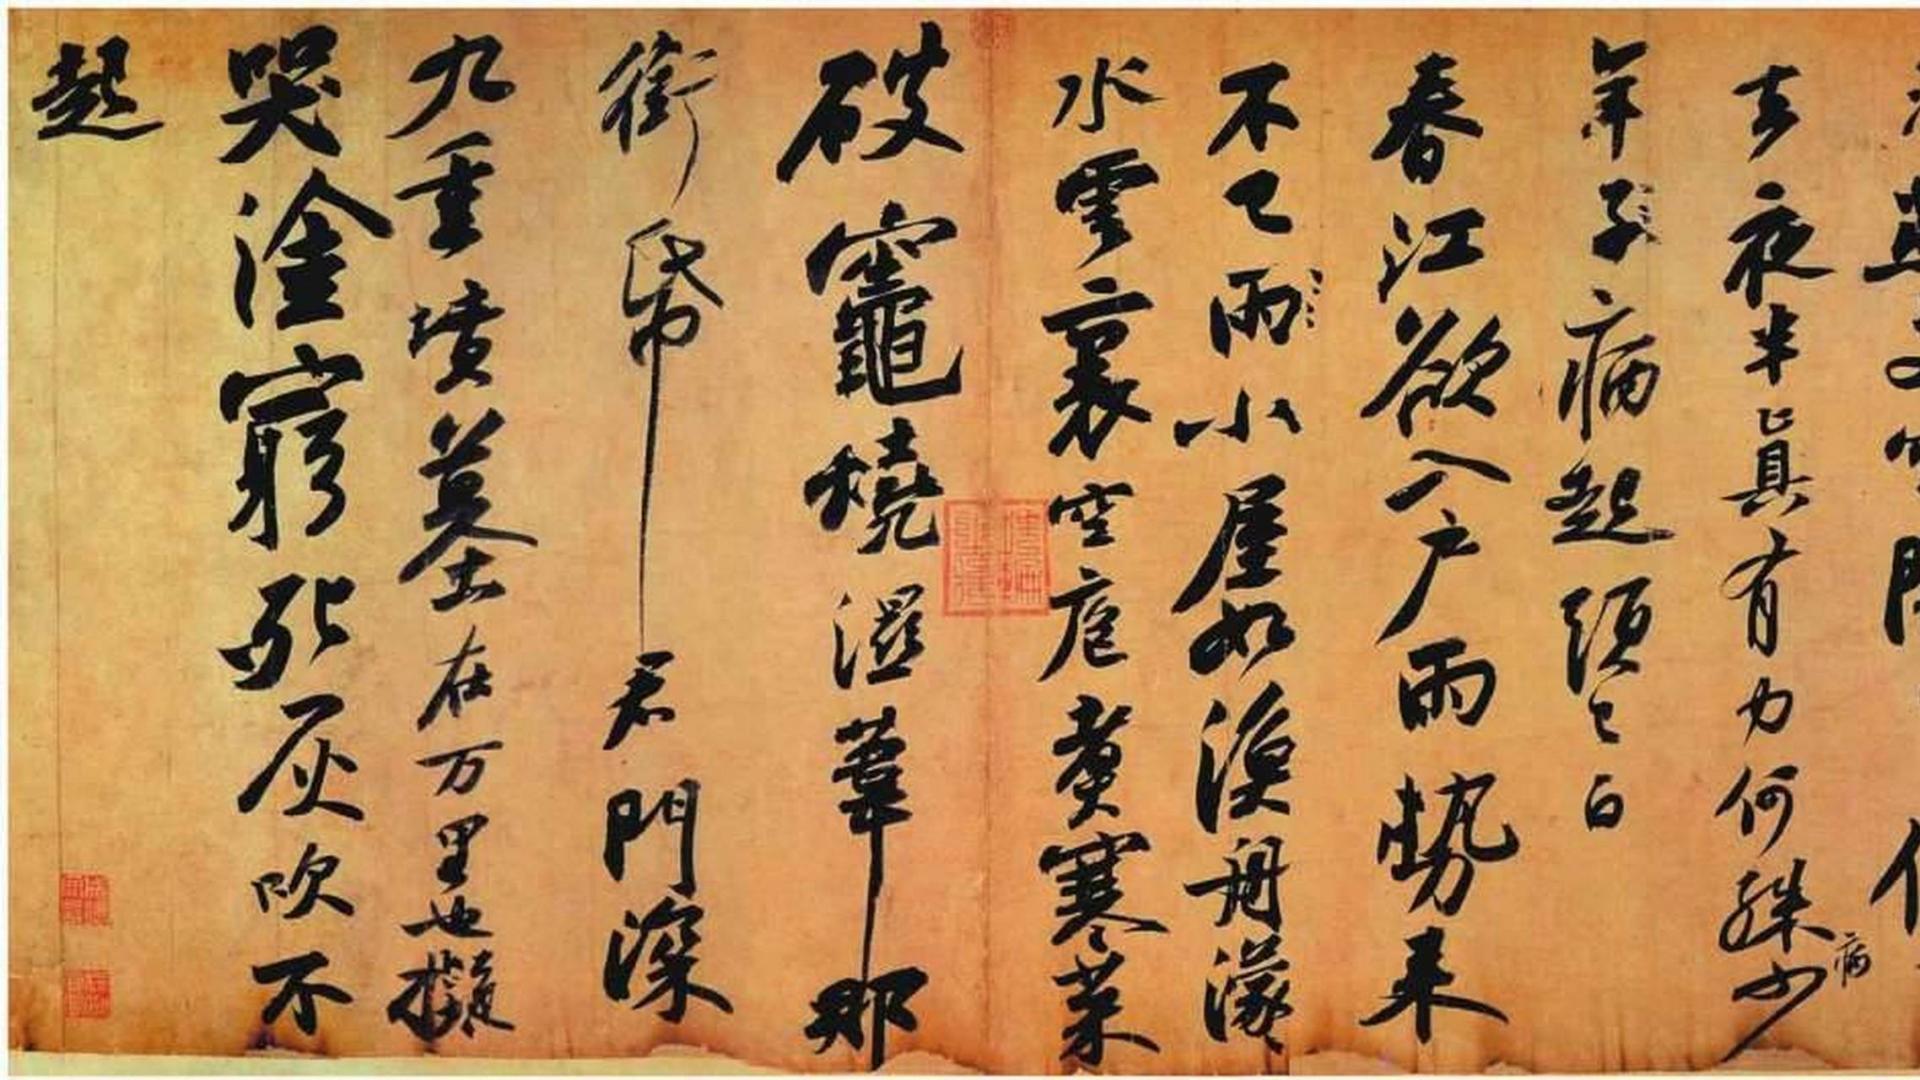 去夜半真有力何殊病少
年子病起頭已白
春江欲入戶雨勢來
不已雨小屋如漁舟濛
水雲裏空庖煮寒菜
破竈燒濕葦那
銜帋君門深
九重墳墓在万里也擬
哭塗窮死灰吹不
起